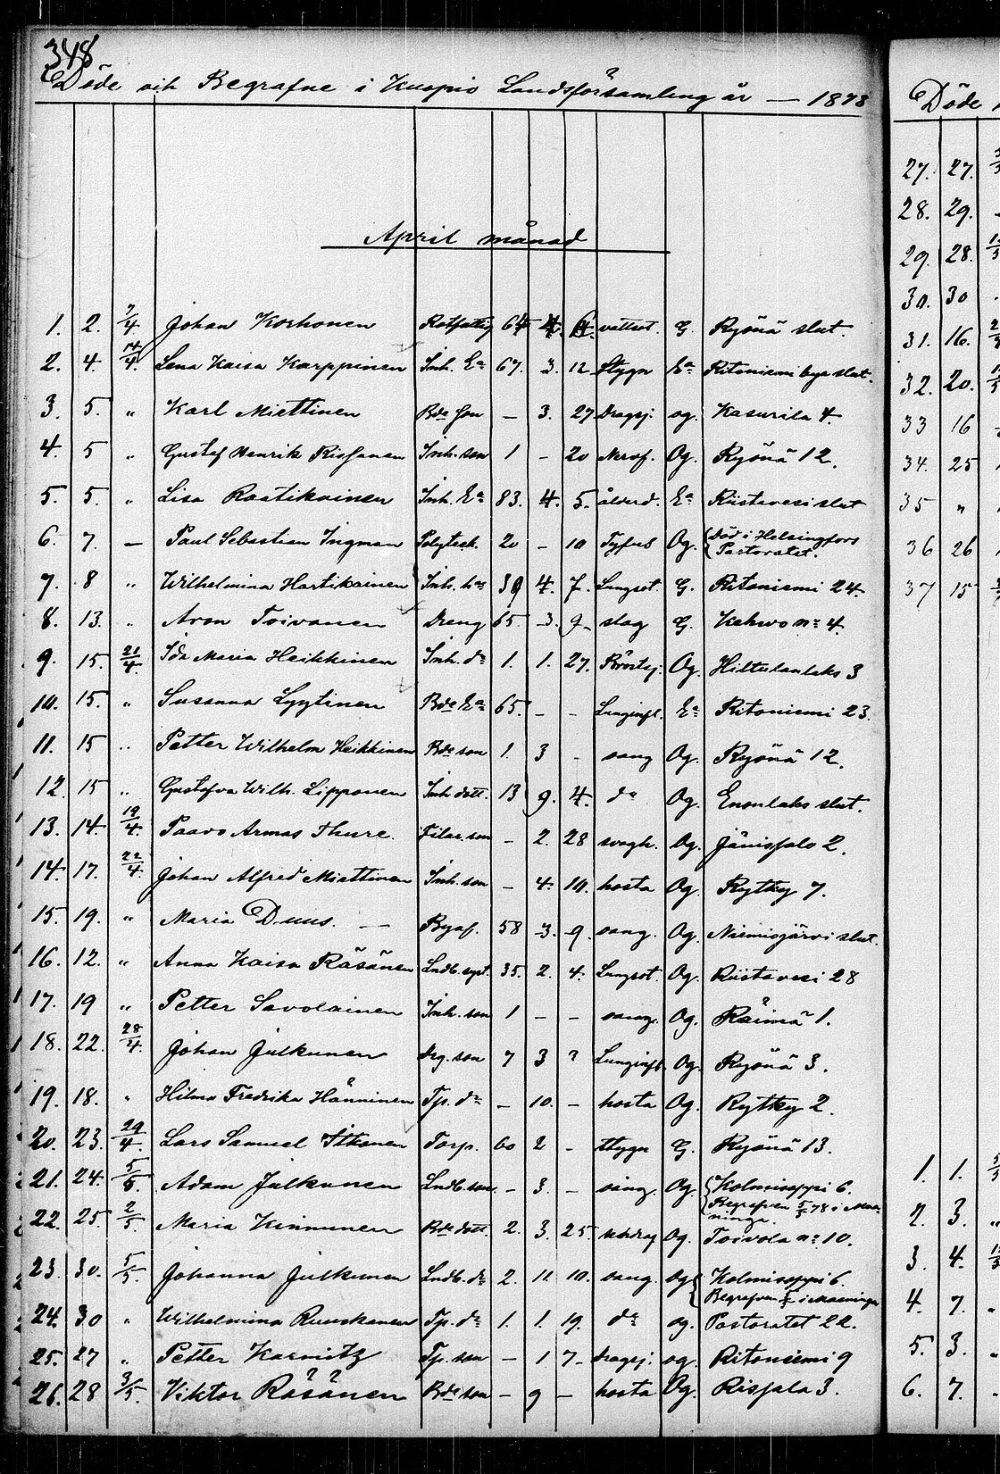 348
Döde och Begrafne i Kuopio Landsförsamling år — 1878
April månad
1. 2. 7/4. Johan Korhonen 64 vattsot. G. Ryönä slut.
2. 4. 14/4. Lena Kaisa Karppinen Inh. Ea 67. 3. 12 Stygn Ea Ritoniemi bys slut.
3. 5. " Karl Miettinen Bde son — 3. 27 Dragsj. og. Kasurila 4.
4. 5 " Gustaf Henrik Rissanen Inh. son 1 - 20 Og. Ryönä 12.
5. 5 " Lisa Raatikainen Inh. Ea 83. 4. 5. ålderd. Ea Riistavesi slut
6. 7. — Paul Sebastian Ingman Polytech. 20 - 10 Tyfus Og. Död i Helsingfors
Pastoratet.
7. 8 " Wilhelmina Hartikainen Inh. hu 39 4. 7. Lungsot. G. Ritoniemi 24.
8. 13. " Aron Toivanen Dreng 65. 3. 9 slag G. Kehvo no 4.
9. 15. 21/4 Ida Maria Heikkinen Inh. dr 1. 1. 27. Bröstsj. Og. Hiltulanlaks 3
10. 15. " Susanna Lyytinen Bde Ea 65. - - Lunginfl. Ea Ritoniemi 23.
11. 15 " Petter Wilhelm Heikkinen Bde son 1. 3 - Og. Ryönä 12.
12. 15 " Gustafva Wilh. Lipponen Inh. dott. 13 9. 4. do Og. Enonlaks slut.
13. 14. 19/4. Paavo Armas Thure. Filar. son - 2. 28 svagh. Og. Jänissalo 2.
14. 17. 22/4. Johan Alfred Miettinen Inh. son - 4. 10. hosta Og. Rytky 7.
15. 19. " Maria Duus. — 58 3. 9. Og. Niemisjärvi slut.
16. 12. " Anna Kaisa Räsänen 35. 2. 4. Lungsot. Og. Riistavesi 28
17. 19 " Petter Savolainen Inh. son 1 - - Og. Räimä 1.
18. 22. 28/4. Johan Julkunen Drg. son 7 3 ? Lunginfl. Og. Ryönä 3.
19. 18. " Hilma Fredrika Hänninen Tp. dr - 10. - hosta Og. Rytky 2.
20. 23. 29/4. Lars Samuel Torp. 60 2 - Stygn G. Ryönä 13.
21. 24. 5/5. Adam Julkunen Lndb. son - 3. - Og. Kolmisoppi 6.
Begrafven 5/5 78 i Maa-
ninga.
22. 25. 2/5 Maria Kinnunen Bde dott. 2. 3. 25. Og. Toivola no 10.
23. 30. 5/5. Johanna Julkunen Lndb. dr 2. 11 10. Og Kolmisoppi 6.
Begrafven 5/5 i Maaninga
24. 30 " Wilhelmina Ruuskanen Tp. dr 1. 1. 19. do og. Pastoratet 22.
25. 27 " Petter Karnitz Tp. son - 1 7 Dragsj. og. Ritoniemi 9
26. 28 3/5. Viktor Räsänen Bde son - 9 - hosta Og. Rissala 3.
Döde
27. 27.
28. 29.
29. 28.
30. 30
31. 16.
32. 20.
33 16
34. 25
35 "
36 26
37 15
1. 1.
2. 3.
3. 4.
4. 7.
5. 3.
6. 7.